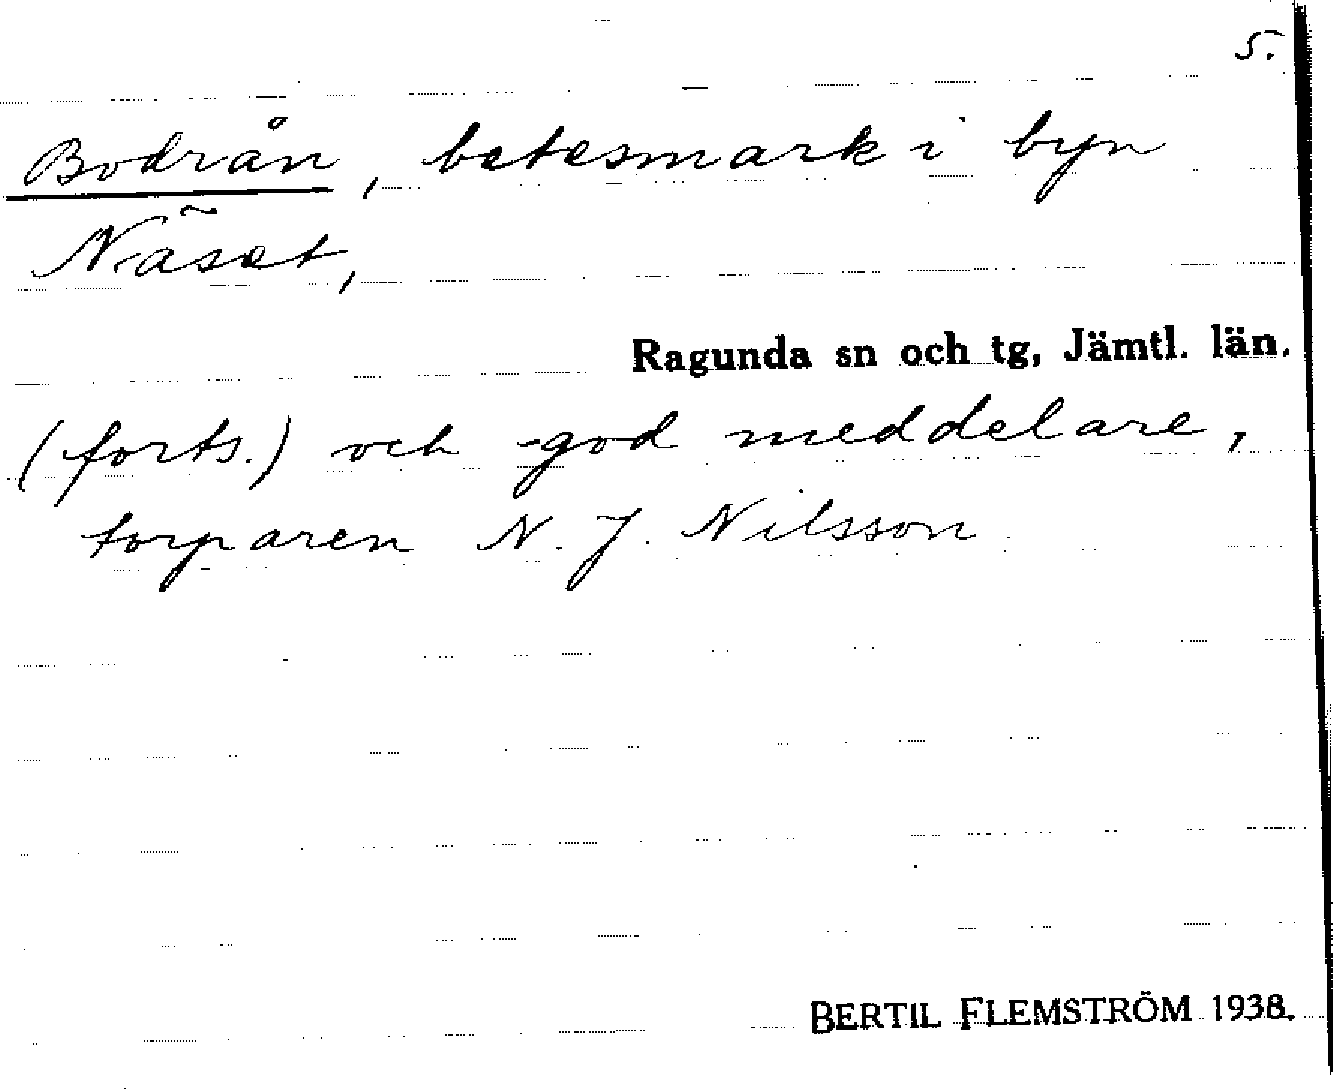 5.
Bodrån, betesmark i byn
Näset,
Ragunda sn och tg, Jämtl. län.
(forts.) och god meddelare,
torparen N. J. Nilsson
BERTIL FLEMSTRÖM 1938.